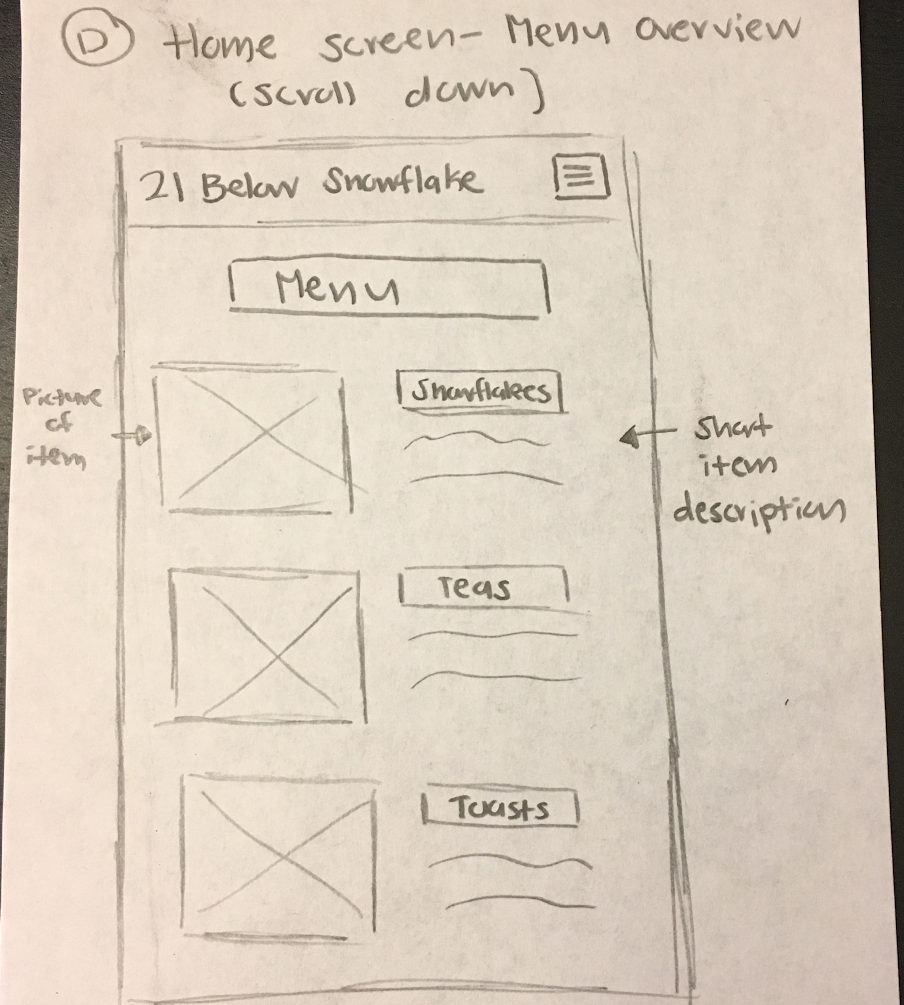 D
Home screen- Menu overview
(scroll down)
21 Below Snowflake
Menu
Picture
of
item
Snowflakes
short
item
description
Teas
Toasts